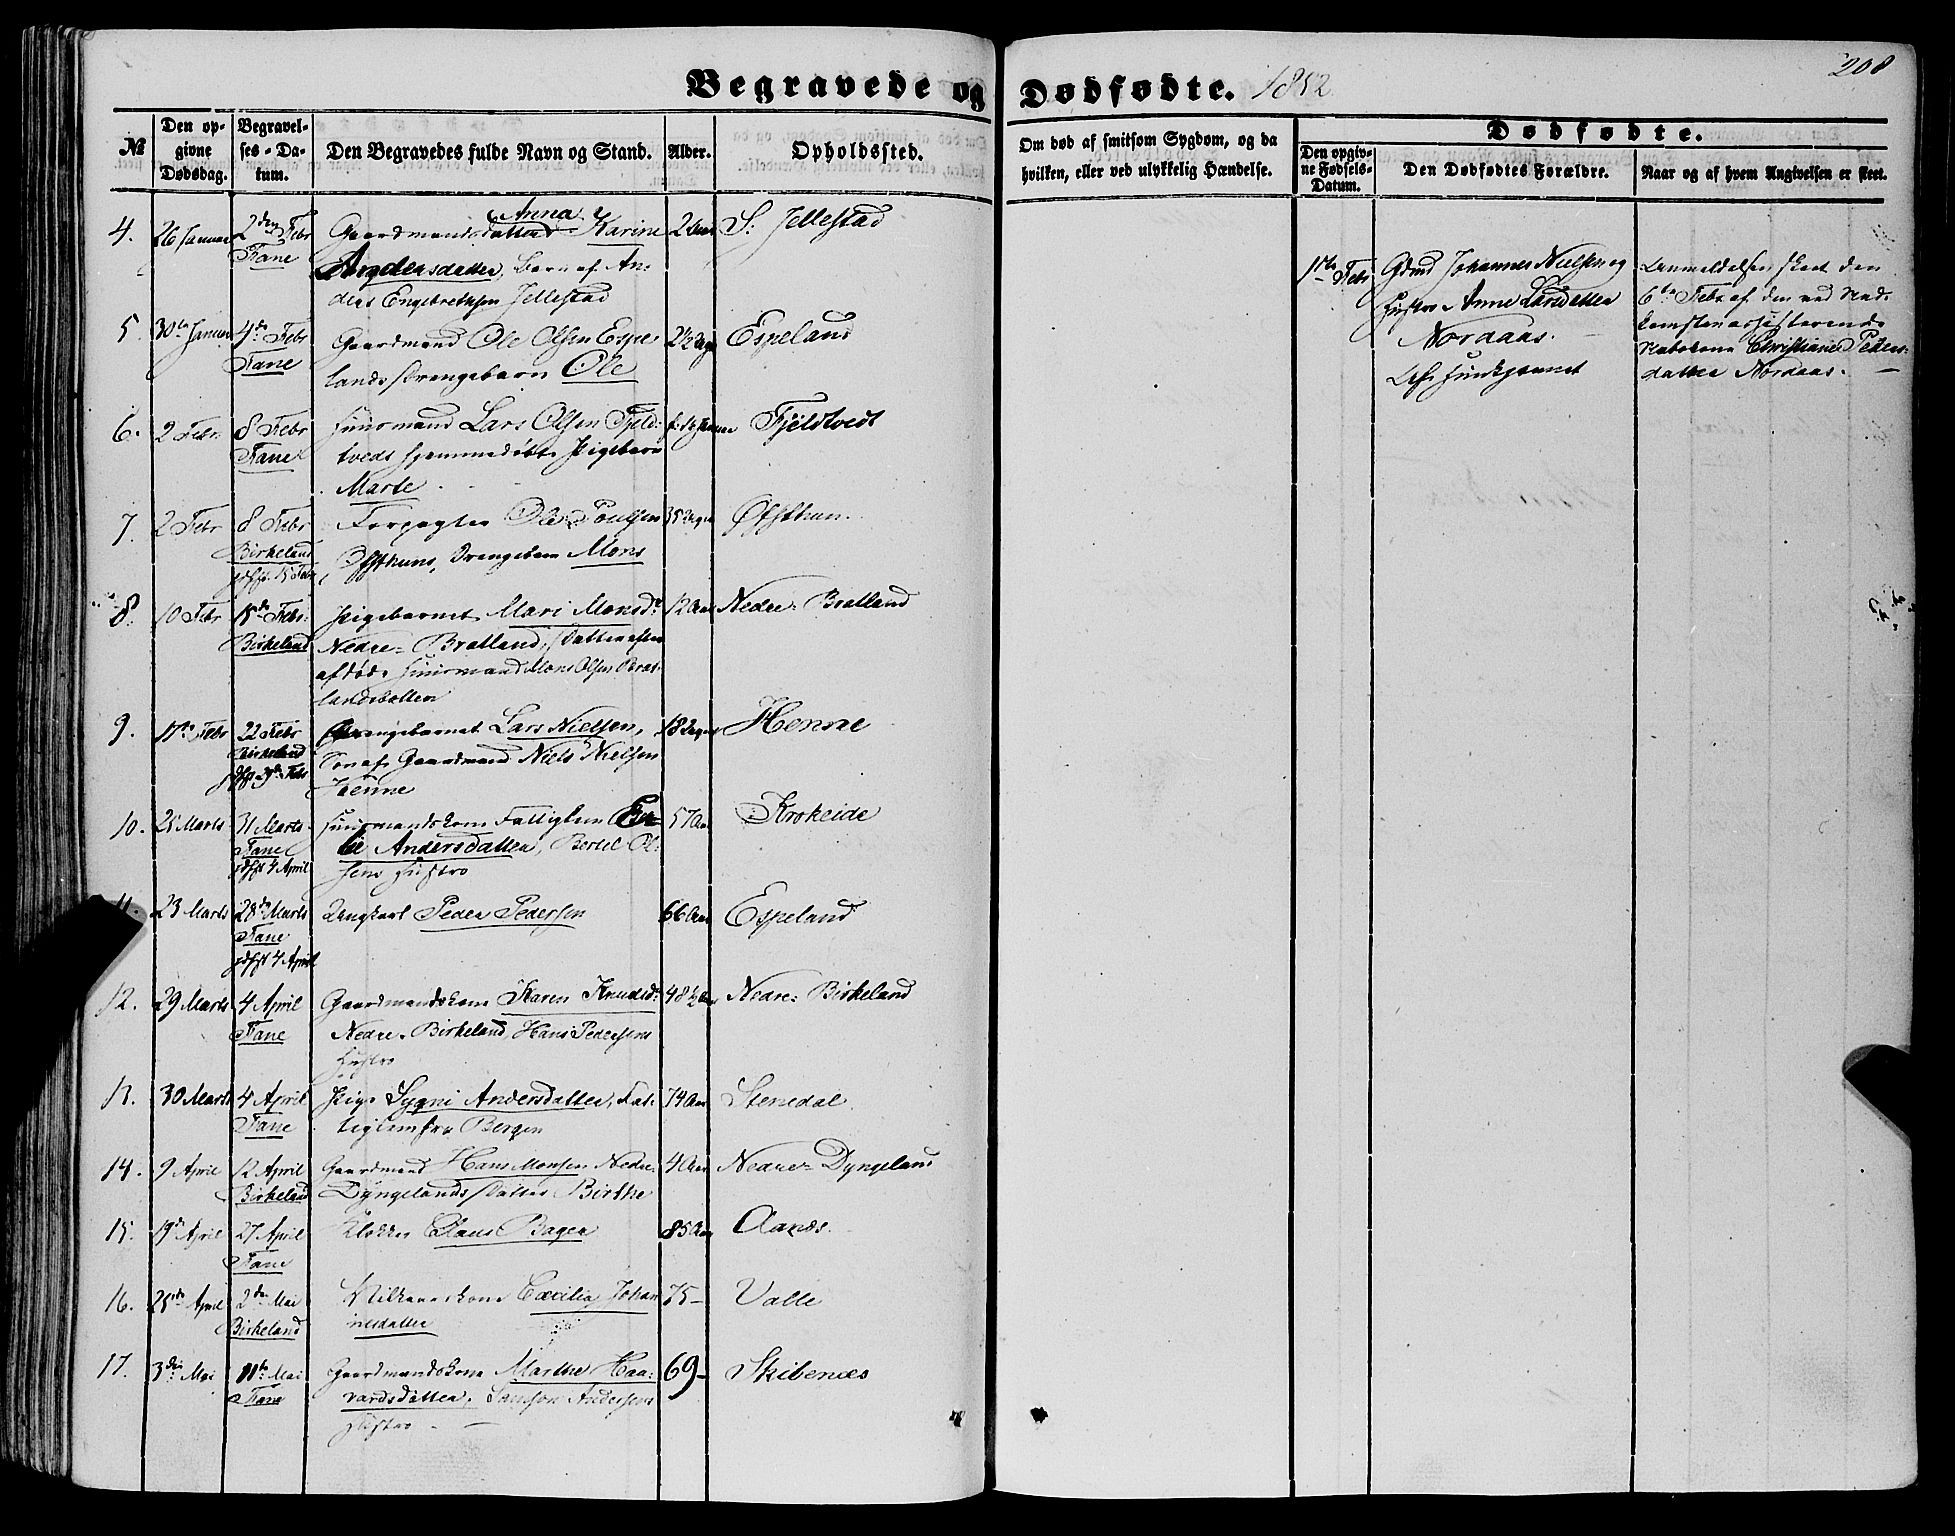 208
Begravede og Dødfødte. 1852
№
Den opgivne Dødsdag.
Begravelses-Datum.
Den Begravedes fulde Navn og Stand.
Alder.
Opholdssted.
Om død af smitsom Sygdom, og da
hvilken, eller ved ulykkelig Hændelse.
Dødfødte.
Den opgivne Fødsels-Datum.
Den Dødfødtes Forældre.
Naar og af hvem Angivelsen er skeet.
4. 26 Januar 2den Febr Gaardmandsdatter Anna Karine S: Jellestad
Fane Andersdatter, Barn af An-
ders Engebrethsen Jellestad
5. 30te Januar 4de Febr Gaardmand Ole Olsen Espe- Espeland
Fane lands Drengebarn Ole
6. 2 Febr 8 Febr Huusmand Lars Olsen Fjeld- Fjeldtvedt
Fane tvedts hjemmedøbte Pigebarn
Marte.
7. 2 Febr 8 Febr Forpagter Ole Poulsen 35 Dage Øfsthun.
Birkeland Øfsthuns, Drengebarn Mons
jdfst 15 Febr
8. 10 Febr 15de Febr. Pigebarnet Mari Monsdr 12 Aar Nedre-Bratland
Birkeland Nedre-Bratland, Datter af den
afdøde Huusmand Mons Olsen Brat-
landsbotten
9. 17de Febr 22 Febr Drengebarnet Lars Nielsen, 18 Dage Henne
Birkeland Søn af Gaardmand Niels Nielsen
jdfst Febr Henne
10. 25 Marts 31 Marts Huusmandskone Fattiglem 57 Aar Krokeide
Fane Andersdatter, Bertel Ol-
jdfst 4 April sens Hustro
11. 23 Marts 28de Marts Ungkarl Peder Pedersen 66 Aar Espeland
Fane
jdfst 4 April
12. 29 Marts 4 April Gaardmandskone Karen Knudsdr 48½ Aar Nedre-Birkeland
Fane Nedre-Birkeland, Hans Pedersens
Hustro
13. 30 Marts 4 April Pige Sygni Andersdatter, Fat- 74 Aar Stenedal.
Fane tiglem fra Bergen
14. 9 April 12 April Gaardmand Hans Monsen Nedre- 4 Aar Nedre-Dyngeland
Birkeland Dyngelands Datter Birthe
15. 19de April 27 April Klokker Claus Bager 85 Aar Aanæs.
Fane
16. 25de April 2den Mai Cæcilia Johan- 75- Valle
Birkeland nesdatter
17. 3die Mai 11te Mai Gaardmandskone Marthe Haa- 69- Skibenæs
Fane vardsdatter, Samson Andersens
Hustro.
Febr Gdmd Johannes Nielsen og
Hustro Anne Larsdatter
Nordaas.
Af Hunkjønnet
Anmeldelsen skeet den
6te Febr af den ved Ned-
komsten assisterende
Nabokone Christiane Peders-
datter Nordaas.